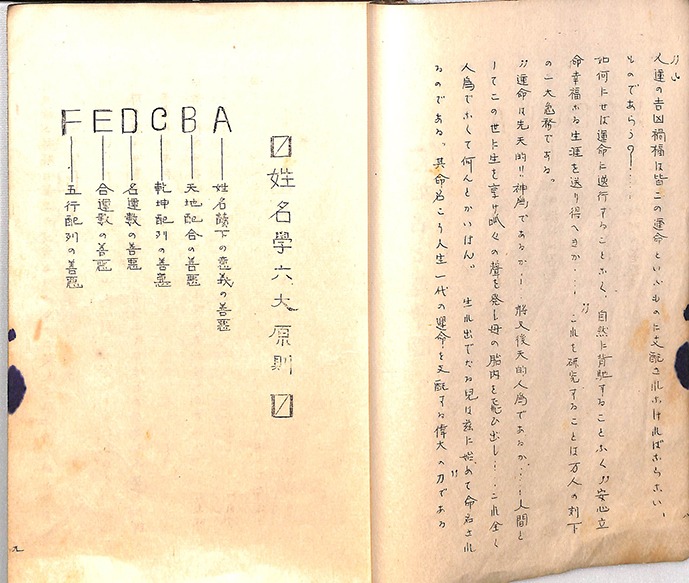 人運の吉凶禍福は皆この運命といふものに支配されなければならない、
ものであらう?……
如何にせば運命に逆行することなく、自然に背馳することなく〃安心立
命幸福なる生涯を送り得へきか…〃これを研究することは万人の刻下
の一大急務である。
〃運命は先天的!!神為であるか…!将又後天的人為であるか…!人間と
してこの世に生を享け呱々の聲を発し母の胎内を飛び出し!…これ全く
人為でなくて何んとかいはん〃 生れ出でたる児は茲に始めて命名され
るのである。其命名こそ人生一代の運命を支配する偉大の力である
姓名學六大原則
A 姓名語下の意義の善惡
B 天地配合の善惡
C 乾坤配列の善惡
D 名運數の善惡
E 合運數の善惡
F 五行配列の善惡
九